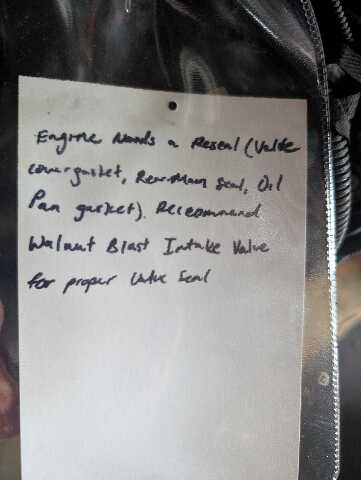 Engine Needs a Reseal (Valve
cover gasket, Rear Main Seal, Oil
Pan gasket). Reccommend
Walnut Blast Intake Valve
for proper Valve Seal